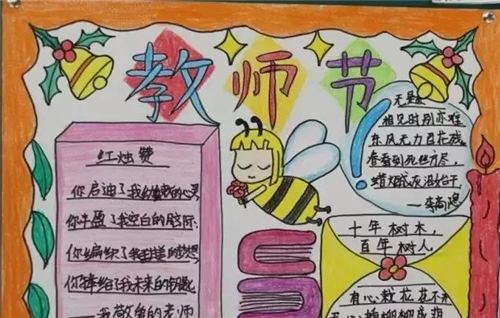 教师节
红烛赞
你启迪了我幼稚的心灵
你丰盈了我空白的脑际
你编织了我的梦想
你捧给了我未来的
——我敬重的老师
无题
相见时别亦难
东风无力百花残
春蚕到死丝方尽,
蜡烛灰泪始干
——李商隐
十年树木,
百年树人
有心栽花花不开